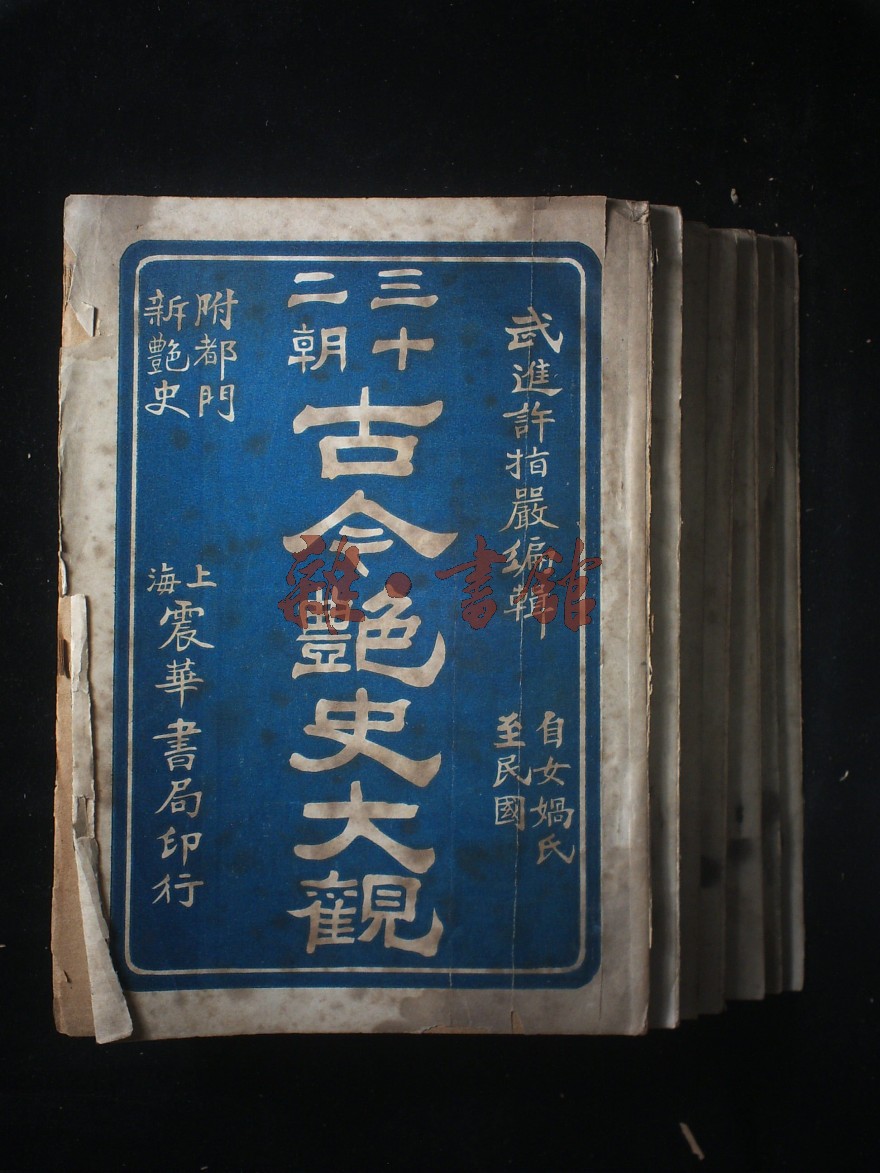 武進許指嚴編輯
自女媧氏
至民國
三十
二朝
古今艷史大觀
附都門
新艷史
上海
震華書局印行
雜·書館